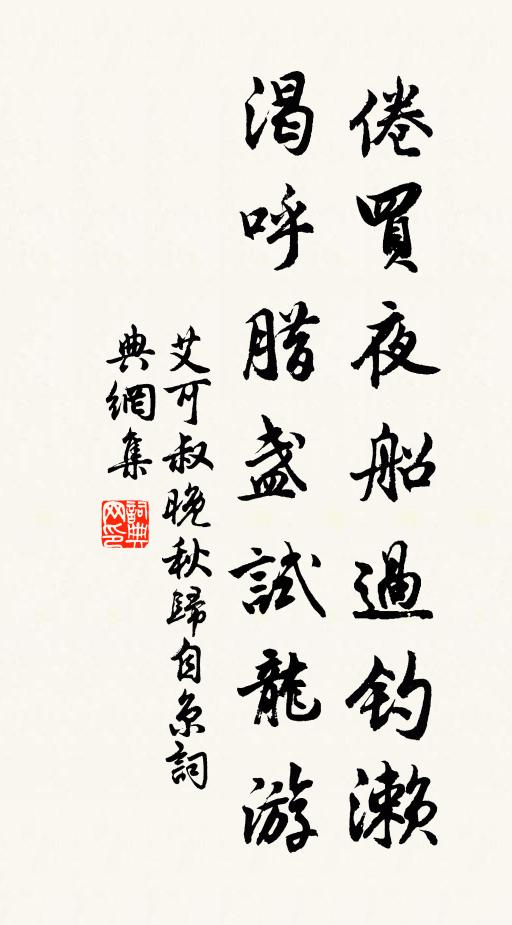 倦買夜船過釣瀨
渴呼腊盞試龍游
艾可叔晚秋歸自京詞
典網集
詞典
网印